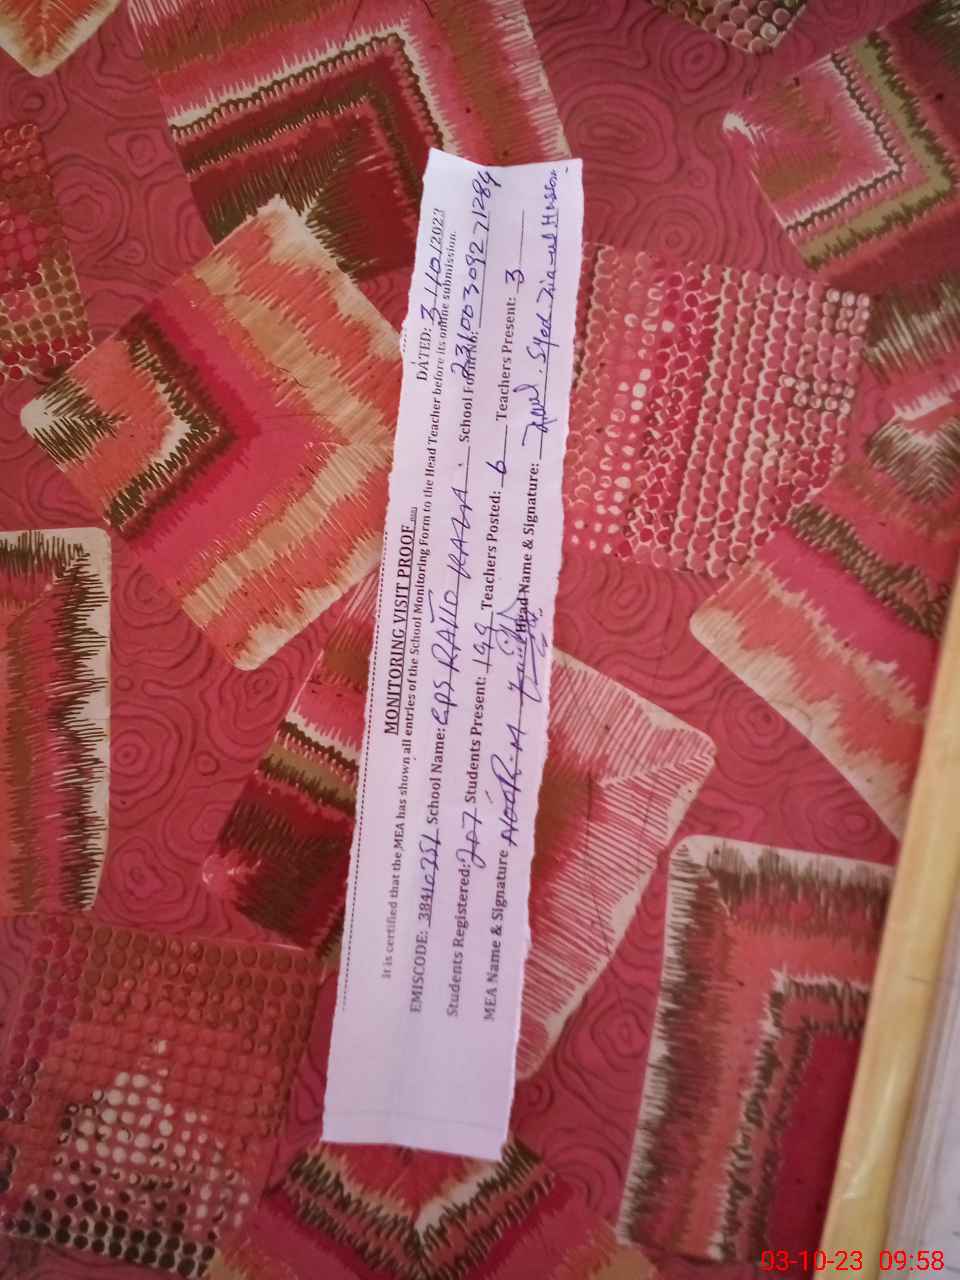 MONITORING VISIT PROOF
DATED: 3/10/2023
It is certified that the MEA has shown all entries of the School Monitoring Form to the Head Teacher before its online submission.
EMISCODE: 38410751 School Name: GPS RAITO KALA. School Form No: 23100309271284
Students Registered: 207 Students Present: 149 Teachers Posted: 6 Teachers Present: 3
MEA Name & Signature NOOR.M Head Name & Signature: Syed Zia-ul Hassan
03-10-23 09:58